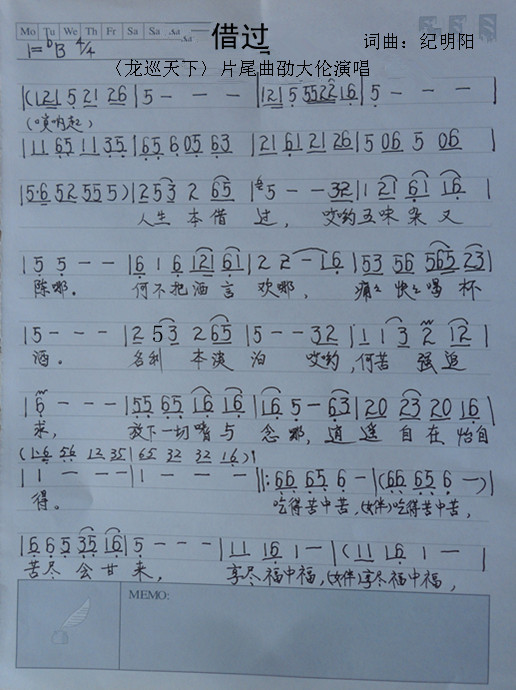 Mo Tu We Th Fr Sa Sa
借过
词曲：纪明阳
1=♭B 4/4
〈龙巡天下〉片尾曲劭大伦演唱
|(121 5 21 26 |5 - - - |121 5 5522 16 |5 - - - |
(唢呐起)
|11 65 11 35 |65 6 05 63 |21 61 21 26 |5 06 5 06 |
|5·6 52 55 5) |2 53 2 65 |5 - - 32 |1 21 61 16 |
人生 本借 过， 哎哟五味杂又
|5 5 - - |6 1 6 121 61 |2 2 - 16 |53 56 565 23 |
陈哪。 何不把酒言 欢哪， 痛痛快快喝杯
|5 - - - |2 53 2 65 |5 - - 32 |1 1 3 2 12 |
酒。 名利 本淡 泊 哎哟，何苦 强追
|6 - - - |55 65 16 16 |16 5 - 63 |20 23 20 16 |
求， 放下一切嗔与 念哪，逍遥自在怡自
(1·6 56 12 35 |65 32 32 16)|
|1 - - - |1 - - - ||:66 65 6 - |(66 65 6 -)|
得。 吃得苦中苦，(女伴)吃得苦中苦，
|6 6 5 35 16 |5 - - - |11 16 1 - |(11 16 1 - |
苦尽 会甘 来， 享尽福中福，(女伴)享尽福中福，
MEMO: